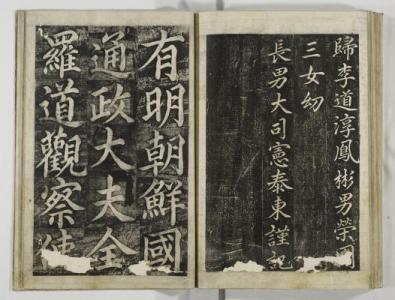 歸李道淳鳳彬男榮同
三女幼
長男大司憲泰東謹記
有明朝鮮國
通政大夫全
羅道觀察使